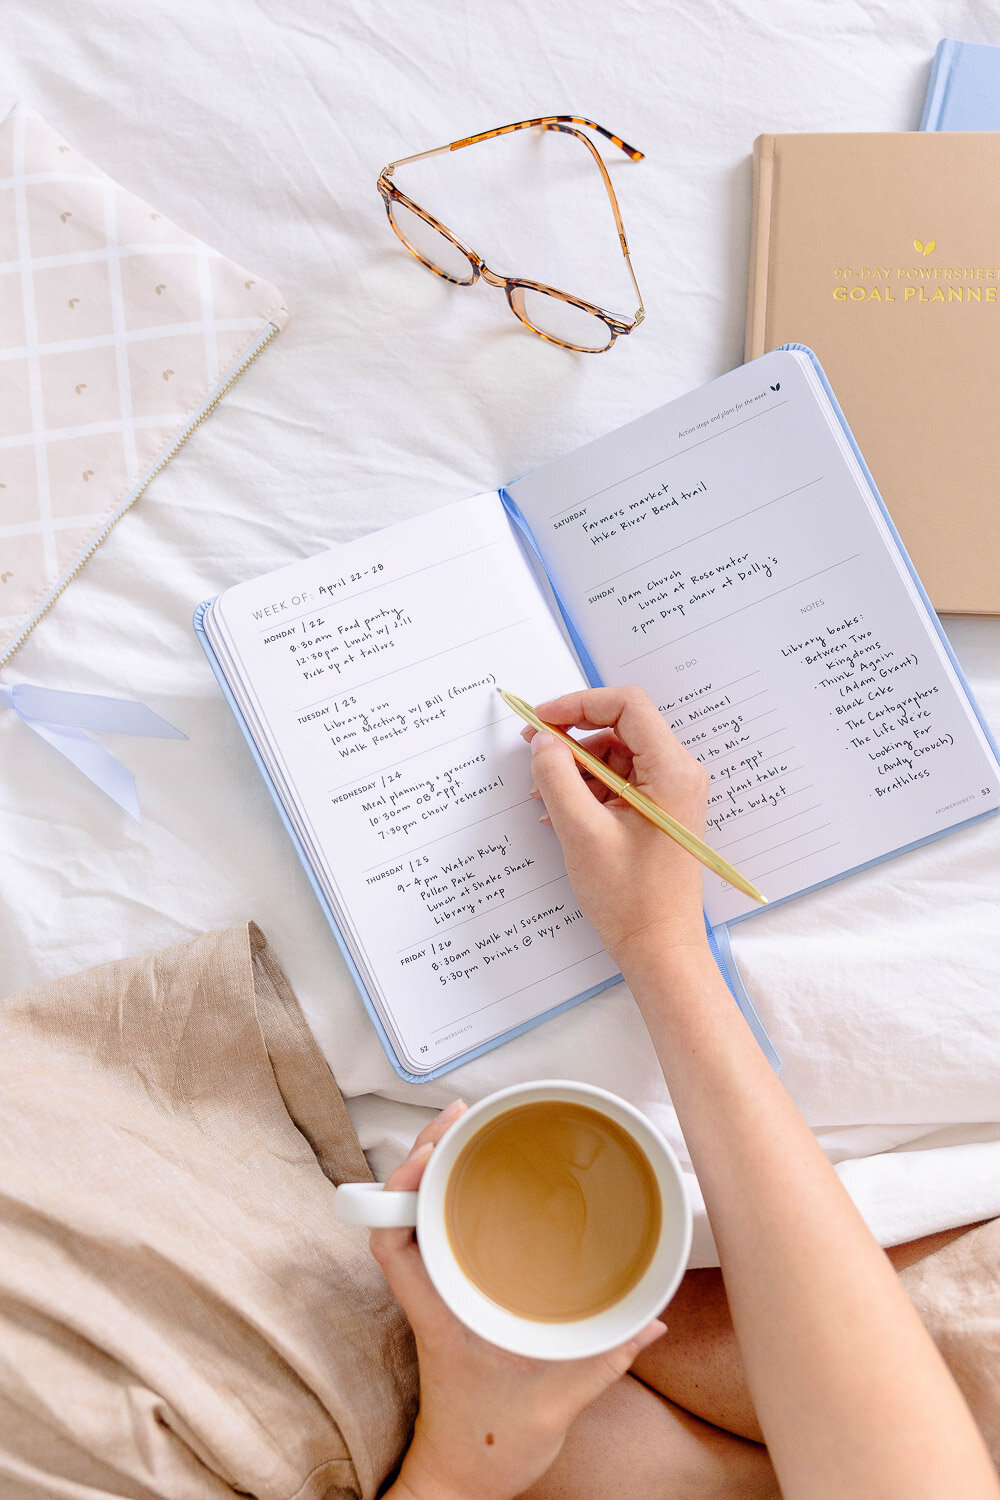 90-DAY POWERSHEETS
GOAL PLANNE
Action steps and plans for the week
WEEK OF: April 22-28
MONDAY / 22
8:30am Food pantry
12:30pm Lunch w/ Jill
Pick up at tailors
TUESDAY / 23
Library run
10am Meeting w/ Bill (finances)
Walk Rooster Street
WEDNESDAY / 24
Meal planning + groceries
10:30am OB appt
7:30pm Choir rehearsal
THURSDAY / 25
9-4pm Watch Ruby!
Pullen Park
Lunch at Shake Shack
Library + nap
FRIDAY / 26
8:30am Walk w/ Susanna
5:30pm Drinks @ Wye Hill
52 #POWERSHEETS
SATURDAY
Farmers market
Hike River Bend trail
SUNDAY
10am Church
Lunch at Rosewater
2pm Drop chair at Dolly's
TO DO
review
all Michael
oose songs
to Mia
eye appt
ean plant table
update budget
NOTES
Library books:
· Between Two
Kingdoms
· Think Again
(Adam Grant)
· Black Cake
· The Cartographers
· The Life We're
Looking For
(Andy Crouch)
· Breathless
#POWERSHEETS 53